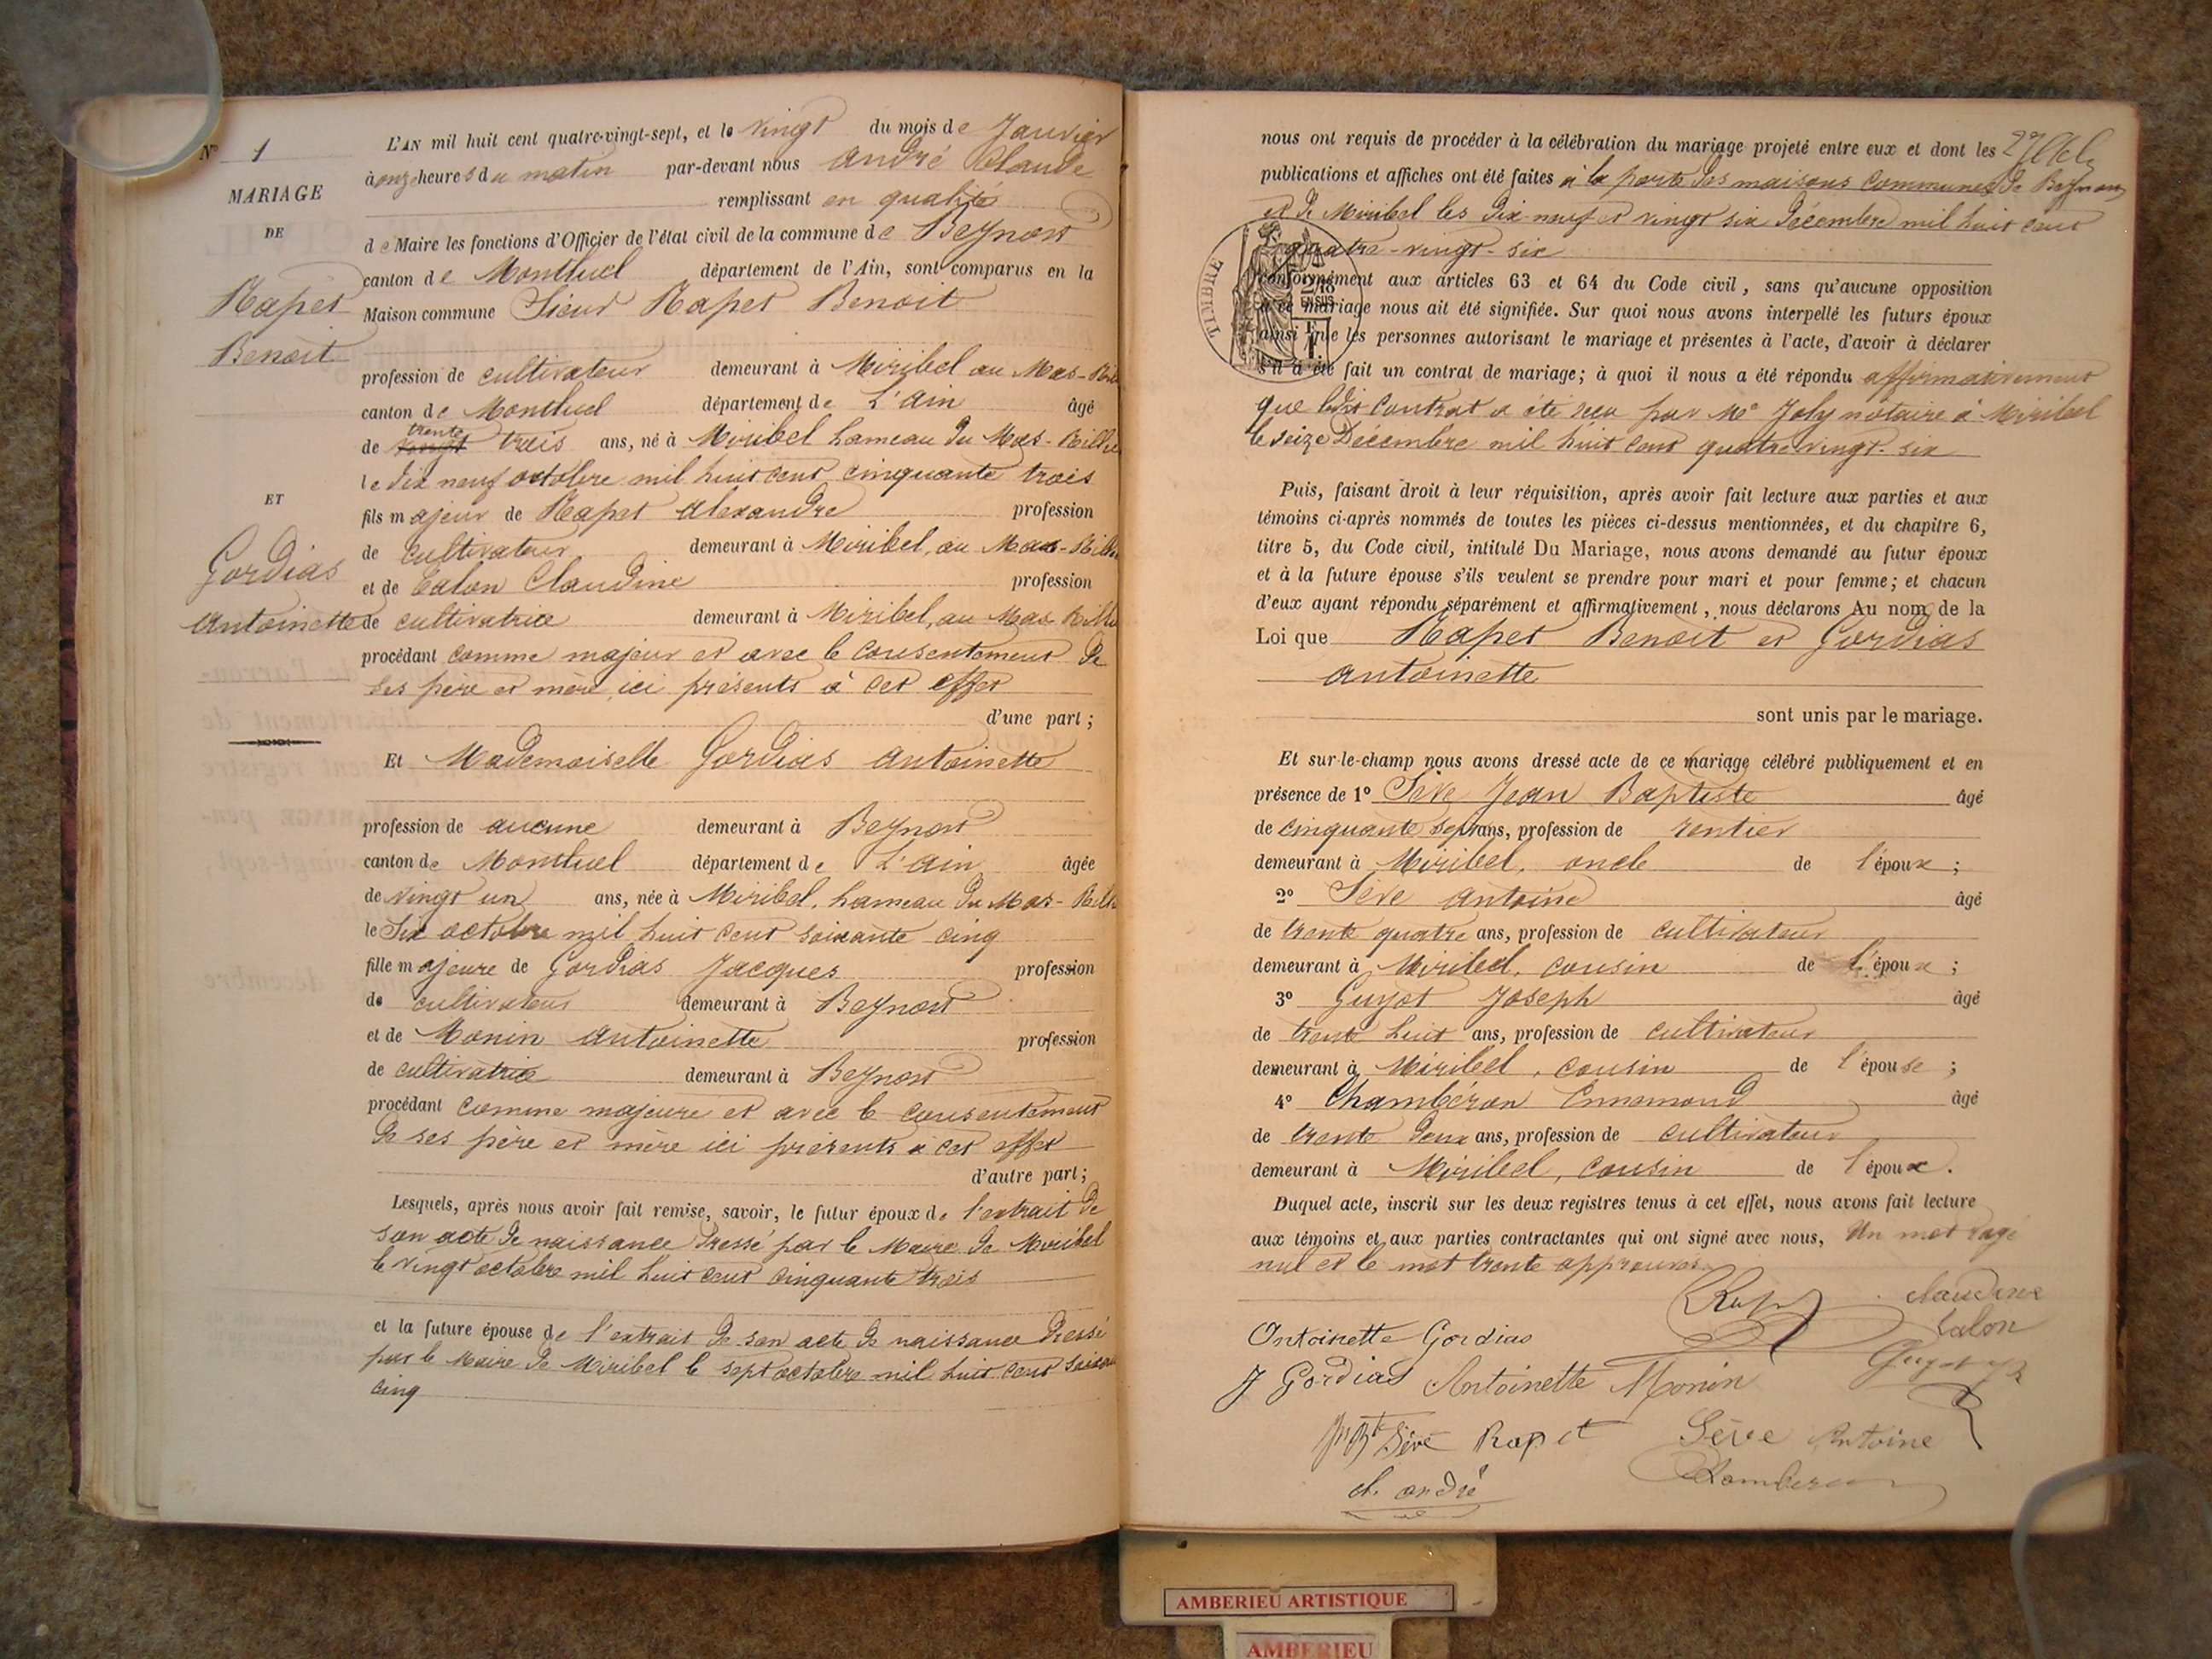 N° 1
MARIAGE
DE
Rapet
Benoit
ET
Gordias
Antoinette
L'AN mil huit cent quatre-vingt-sept, et le vingt du mois de Janvier
à onze heures du matin par-devant nous André Claude
remplissant en qualité
de Maire les fonctions d'Officier de l'état civil de la commune de Beynost
canton de Montluel département de l'Ain, sont comparus en la
Maison commune Sieur Rapet Benoit
profession de cultivateur demeurant à Miribel au Mas-Rill
canton de Montluel département de L'Ain âgé
de vingt trente trois ans, né à Miribel hameau du Mas-Rillie
le dix neuf octobre mil huit cent cinquante trois
fils majeur de Rapet Alexandre profession
de cultivateur demeurant à Miribel, au Mas-Rillie
et de Calon Claudine profession
de cultivatrice demeurant à Miribel, au Mas-Rillie
procédant comme majeur et avec le consentement de
ses père et mère, ici présents à cet effet
d'une part ;
Et Mademoiselle Gordias Antoinette
profession de aucune demeurant à Beynost
canton de Montluel département de L'Ain âgée
de vingt un ans, née à Miribel, hameau du Mas-Rill
le Six octobre mil huit cent soixante cinq
fille majeure de Gordias Jacques profession
de cultivateur demeurant à Beynost
et de Monin Antoinette profession
de cultivatrice demeurant à Beynost
procédant comme majeure et avec le consentement
de ses père et mère ici présents à cet effet
d'autre part ;
Lesquels, après nous avoir fait remise, savoir, le futur époux de l'extrait de
son acte de naissance dressé par le Maire de Miribel
le vingt octobre mil huit cent cinquante trois
et la future épouse de l'extrait de son acte de naissance dressé
par le Maire de Miribel le sept octobre mil huit cent soixante
cinq
nous ont requis de procéder à la célébration du mariage projeté entre eux et dont les
publications et affiches ont été faites à la porte des maisons Communes de Beynost
et de Miribel les dix-neuf et vingt six décembre mil huit cent
quatre-vingt-six
TIMBRE
conformément aux articles 63 et 64 du Code civil, sans qu'aucune opposition
à ce mariage nous ait été signifiée. Sur quoi nous avons interpellé les futurs époux
ainsi que les personnes autorisant le mariage et présentes à l'acte, d'avoir à déclarer
s'il a été fait un contrat de mariage ; à quoi il nous a été répondu affirmativement
que ledit Contrat a été reçu par Me Joly notaire à Miribel
le seize Décembre mil huit cent quatre vingt-six
Puis, faisant droit à leur réquisition, après avoir fait lecture aux parties et aux
témoins ci-après nommés de toutes les pièces ci-dessus mentionnées, et du chapitre 6,
titre 5, du Code civil, intitulé Du Mariage, nous avons demandé au futur époux
et à la future épouse s'ils veulent se prendre pour mari et pour femme ; et chacun
d'eux ayant répondu séparément et affirmativement, nous déclarons Au nom de la
Loi que Rapet Benoit et Gordias
Antoinette
sont unis par le mariage.
Et sur-le-champ nous avons dressé acte de ce mariage célébré publiquement et en
présence de 1° Sève Jean Baptiste âgé
de cinquante sept ans, profession de rentier
demeurant à Miribel, oncle de l'époux ;
2° Sève Antoine âgé
de trente quatre ans, profession de cultivateur
demeurant à Miribel, cousin de l'époux ;
3° Guyot Joseph âgé
de trente huit ans, profession de cultivateur
demeurant à Miribel, cousin de l'épouse ;
4° Chambéron Ennemond âgé
de trente deux ans, profession de cultivateur
demeurant à Miribel, cousin de l'époux.
Duquel acte, inscrit sur les deux registres tenus à cet effet, nous avons fait lecture
aux témoins et aux parties contractantes qui ont signé avec nous, Un mot rayé
nul et le mot trente approuvés
Claudine
Calon
Antoinette Gordias
J Gordias Antoinette Monin
Jn Bte Sève Rapet Sève Antoine
cl. andré
AMBERIEU ARTISTIQUE
AMBERIEU